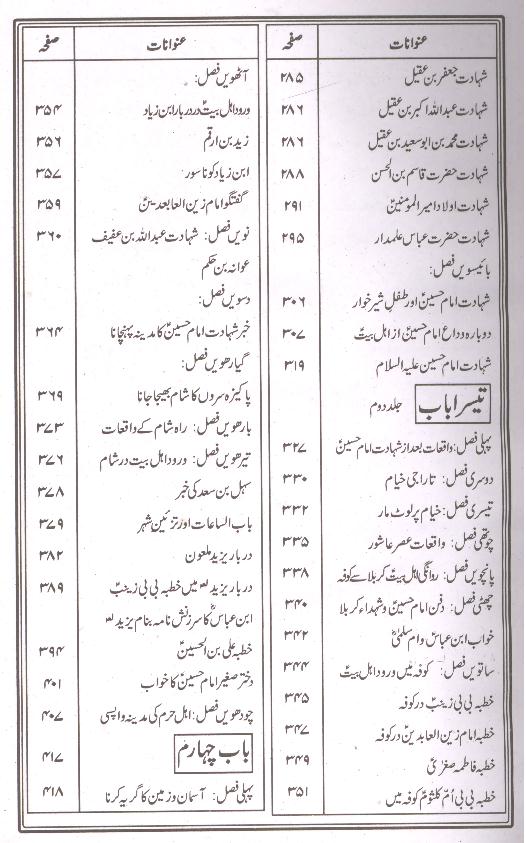 عنوانات صفحہ
شہادت جعفر بن عقیل ۲۸۵
شہادت عبداللہ اکبر بن عقیل ۲۸۶
شہادت محمد بن ابوسعید بن عقیل ۲۸۶
شہادت حضرت قاسم بن الحسن ۲۸۸
شہادت اولاد امیر المومنینؑ ۲۹۱
شہادت حضرت عباس علمدار ۲۹۵
بائیسویں فصل:
شہادت امام حسینؑ اور طفل شیر خوار ۳۰۶
دوبارہ وداع امام حسینؑ از اہل بیتؑ ۳۰۷
شہادت امام حسین علیہ السلام ۳۱۹
تیسرا باب جلد دوم
پہلی فصل: واقعات بعد از شہادت امام حسینؑ ۳۲۷
دوسری فصل: تاراجی خیام ۳۳۰
تیسری فصل: خیام پر لوٹ مار ۳۳۲
چوتھی فصل: واقعات عصر عاشور ۳۳۵
پانچویں فصل: روانگی اہل بیتؑ کربلا سے کوفہ ۳۳۸
چھٹی فصل: دفن امام حسینؑ و شہداء کربلا ۳۴۰
خواب ابن عباسؓ و ام سلمیٰؓ ۳۴۲
ساتویں فصل: کوفہ میں ورود اہل بیتؑ ۳۴۴
خطبہ بی بی زینبؑ در کوفہ ۳۴۵
خطبہ امام زین العابدینؑ در کوفہ ۳۴۷
خطبہ فاطمہ صغریٰؑ ۳۴۹
خطبہ بی بی اُم کلثومؑ کوفہ میں ۳۵۱
عنوانات صفحہ
آٹھویں فصل:
ورود اہل بیتؑ در دربار ابن زیاد ۳۵۴
زید بن ارقم ۳۵۶
ابن زیاد کو ناسور ۳۵۷
گفتگو امام زین العابدینؑ ۳۵۹
نویں فصل: شہادت عبداللہ بن عفیف ۳۶۰
عوانہ بن حکم
دسویں فصل:
خبر شہادت امام حسینؑ کا مدینہ پہنچانا ۳۶۴
گیارھویں فصل:
پاکیزہ سروں کا شام بھیجا جانا ۳۶۹
بارھویں فصل: راہ شام کے واقعات ۳۷۳
تیرھویں فصل: ورود اہل بیت در شام ۳۷۶
سہل بن سعد کی خبر ۳۷۸
باب الساعات اور تزئین شہر ۳۷۹
دربار یزید ملعون ۳۸۲
دربار یزید لعہ میں خطبہ بی بی زینبؑ ۳۸۹
ابن عباسؓ کا سرزنش نامہ بنام یزید لعہ
خطبہ علی بن الحسینؑ ۳۹۴
دختر صغیر امام حسینؑ کا خواب ۴۰۱
چودھویں فصل: اہل حرم کی مدینہ واپسی ۴۰۷
باب چہارم ۴۱۷
پہلی فصل: آسمان و زمین کا گریہ کرنا ۴۱۸